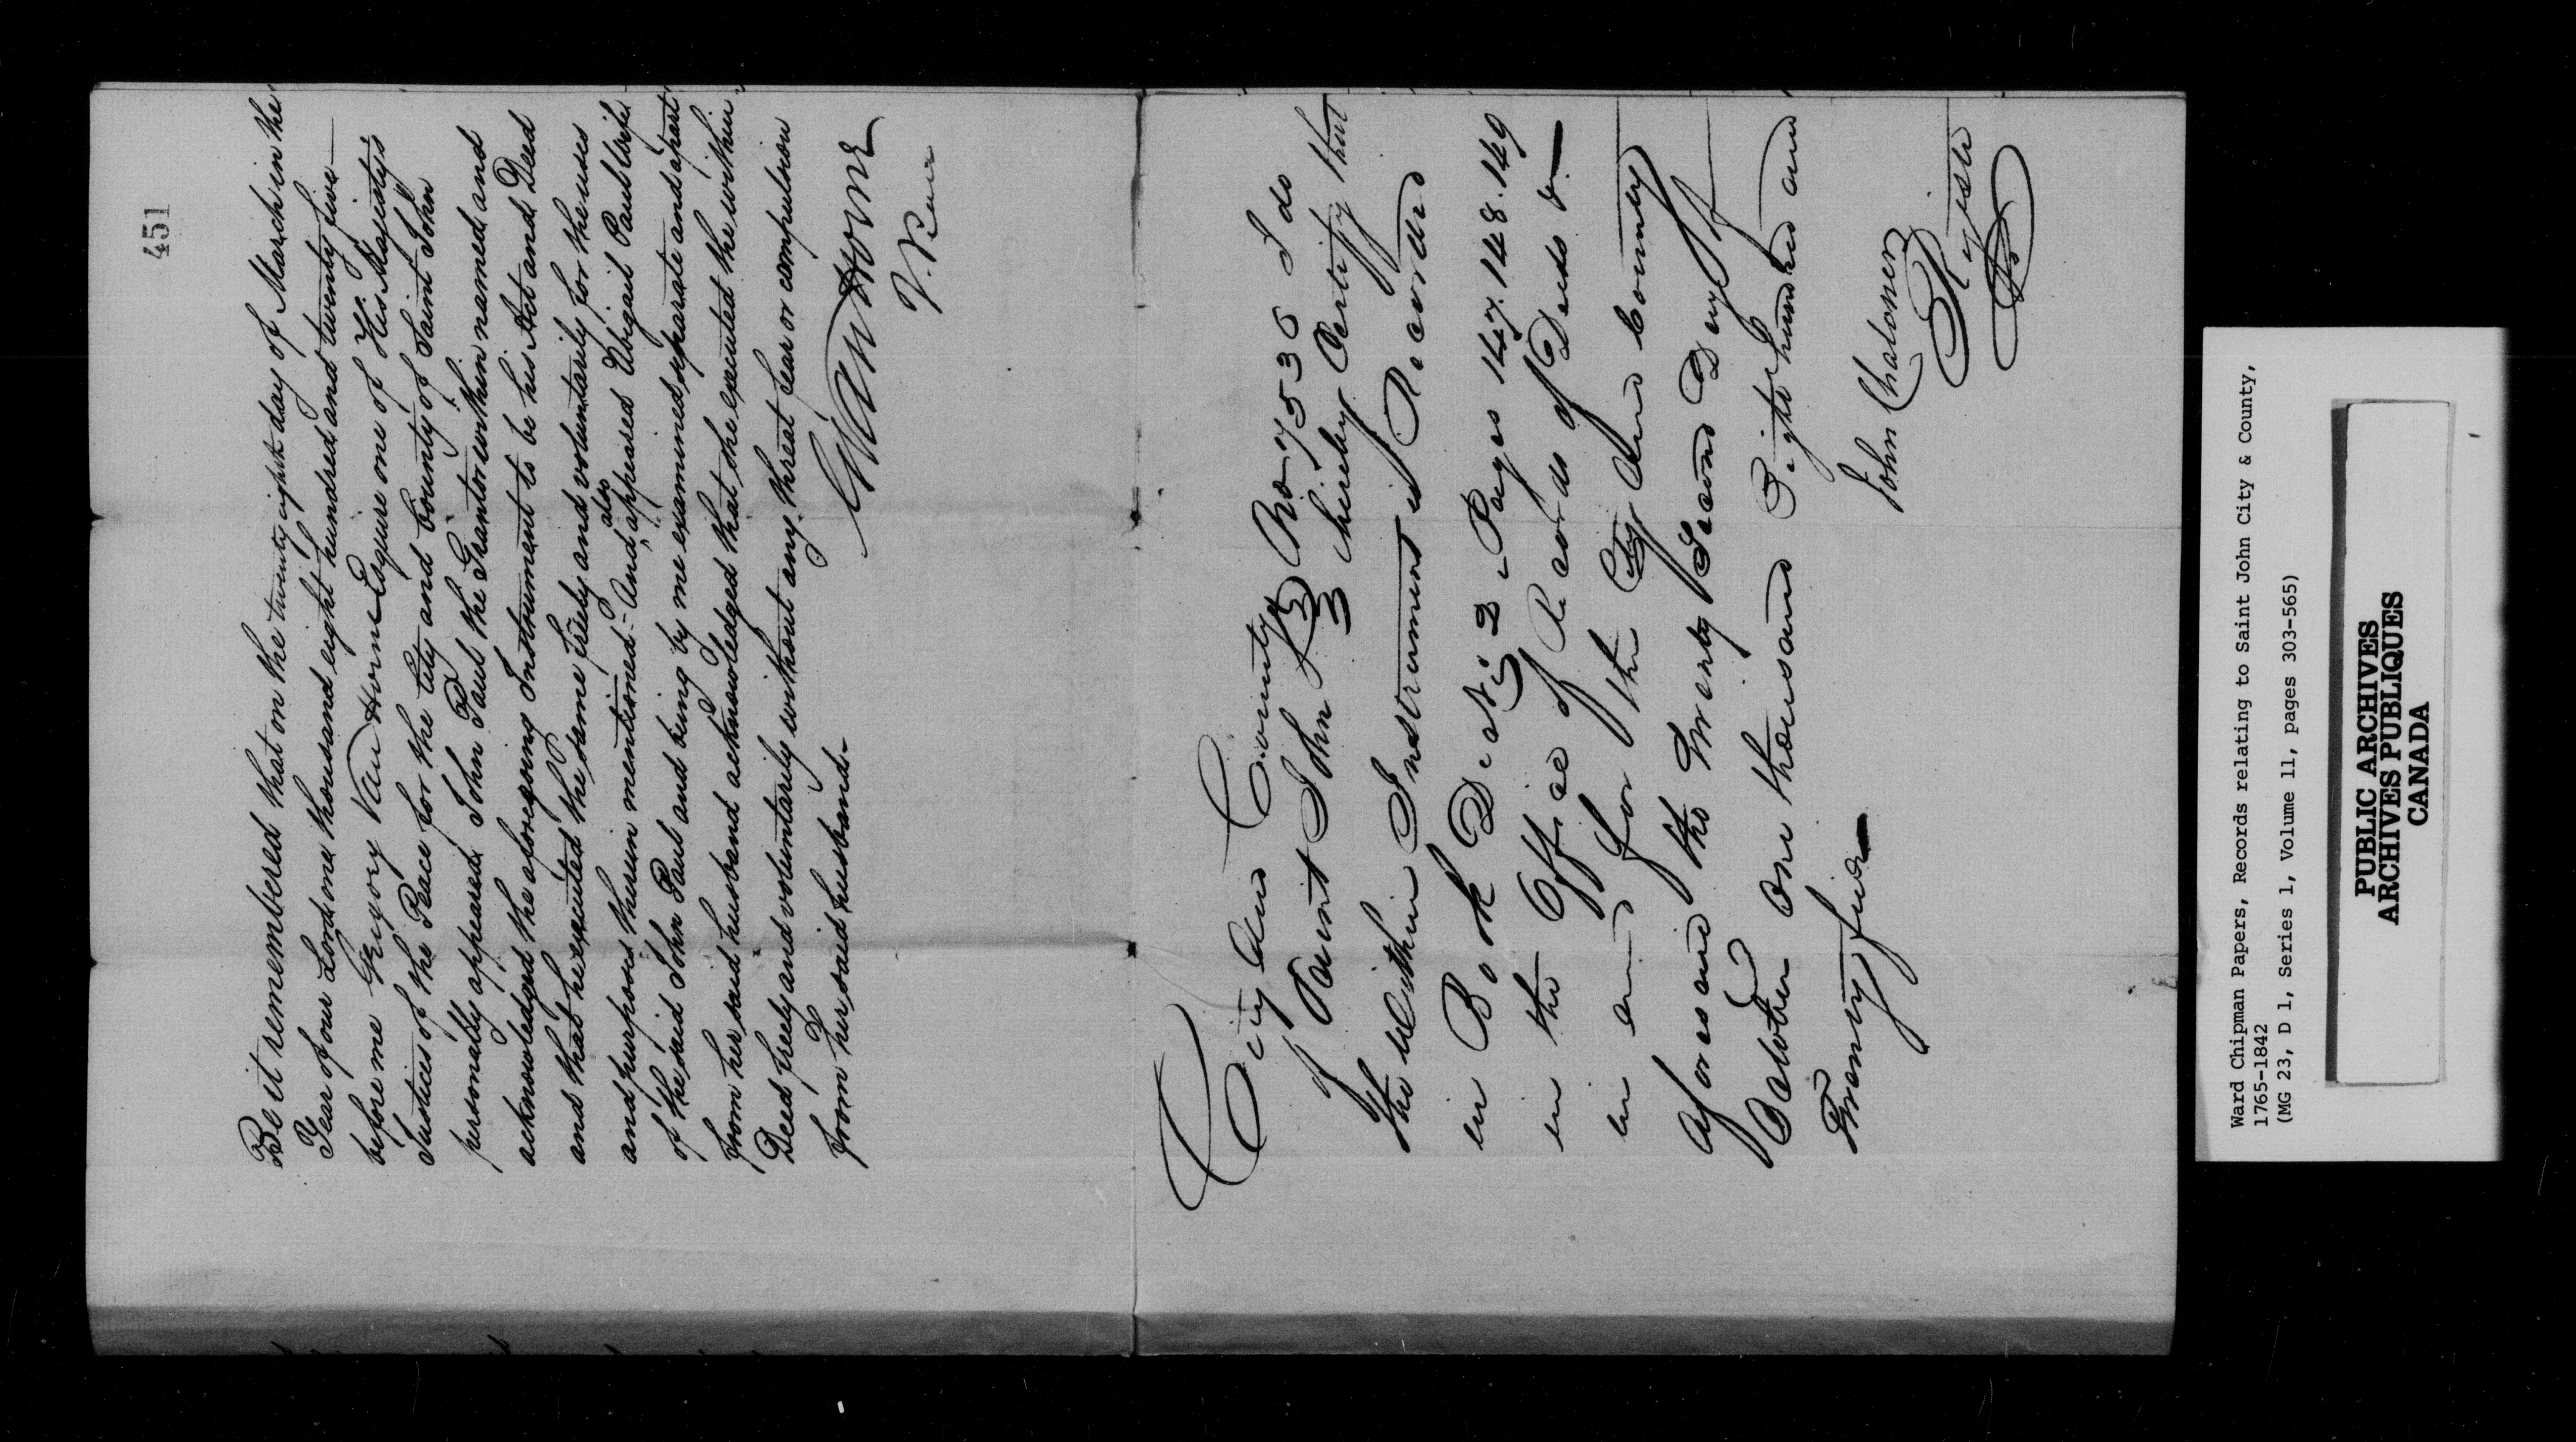 451
Be it remembered that on the twenty eight day of March in the
Year of our Lord one thousand eight hundred and twenty five
before me Gregory Van Horne Esquire one of His Majesty's
Justices of the Peace for the City and County of Saint John
personally appeared John Paul the Grantor within named and
acknowledged the aforegoing Instrument to be his Act and Deed
and that he executed the same freely and voluntarily for the uses
and purposes therein mentioned - And also appeared Abigail Paul Wife
of the said John Paul and being by me examined separate and apart
from her said husband acknowledged that she executed the within
Deed freely and voluntarily without any threat fear or compulsion
from her said husband.
G Van Horne
J. Peace
City and County
of Saint John
No 7535 I do
hereby Certify that
the within Instrument is Recorded
in Book D No 2 Pages 147. 148. 149
in the Office of Records of Deeds &
in and for the City and County
aforesaid the Twenty Second Day of
October One thousand Eight hundred and
Twenty five
John Chaloner
Register
Ward Chipman Papers, Records relating to Saint John City & County,
1765-1842
(MG 23, D 1, Series 1, Volume 11, pages 303-565)
PUBLIC ARCHIVES
ARCHIVES PUBLIQUES
CANADA